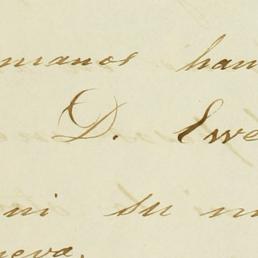 manos han
D. Ewe
ni su m
neva.